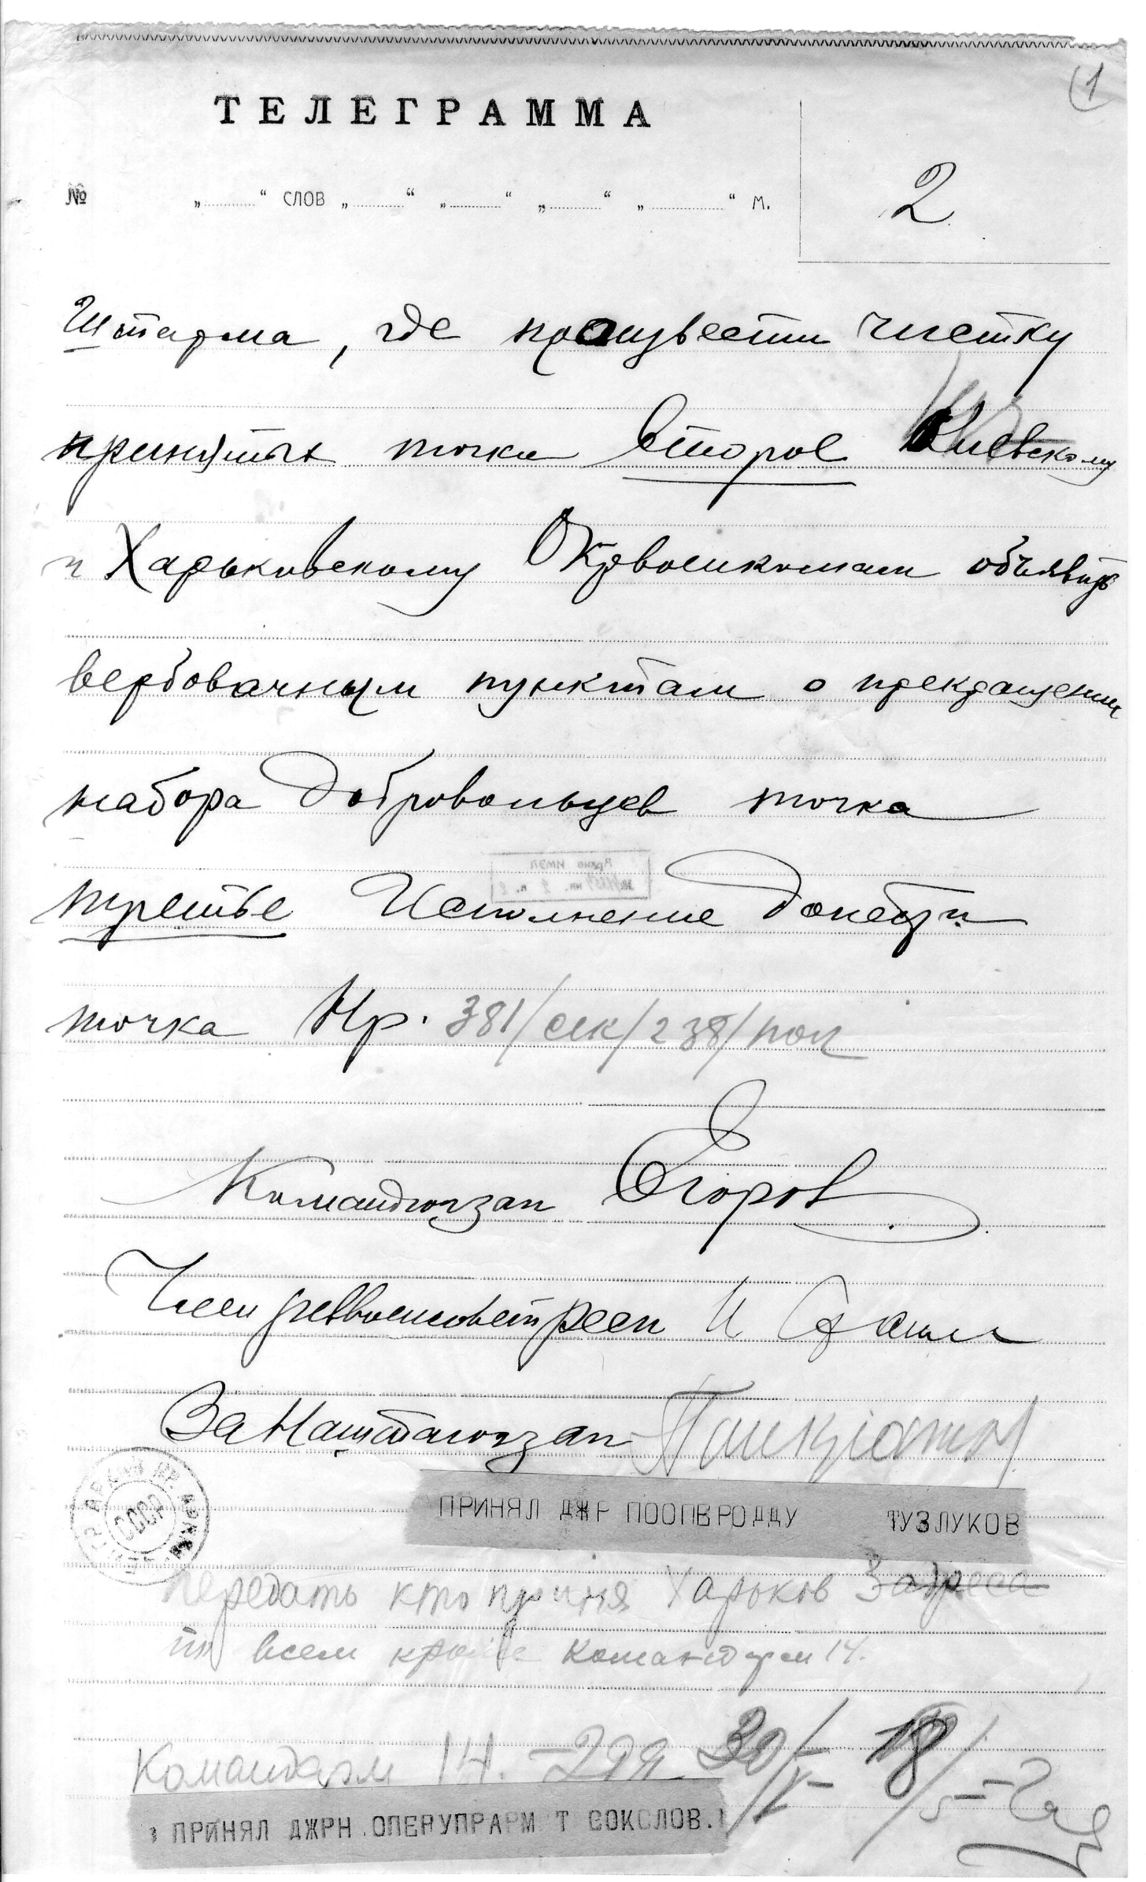 1
ТЕЛЕГРАММА
№ „ “ слов „ “ „ “ „ “ „ “ м.
2
Штарма, где произвести чистку
принятых точка Второе Киевскому
и Харьковскому Окрвоенкомам объявить
вербовачным пунктам о прекращении
набора добровольцев точка
третье Исполнение донести
точка Нр. 381/сек/238/пол
Командюгзап Егоров
Член реввоенсовета И Сталин
За Наштаюгзап Панкратов
ПРИНЯЛ ДЖР ПООПВРОДДУ ТУЗЛУКОВ
СССР
передать кто приня Харьков 3 адреса
по всем кроме командарм 14.
Командарм 14. 30/ 18/
ПРИНЯЛ ДЖРН ОПЕРУПРАРМ Т СОКОЛОВ.